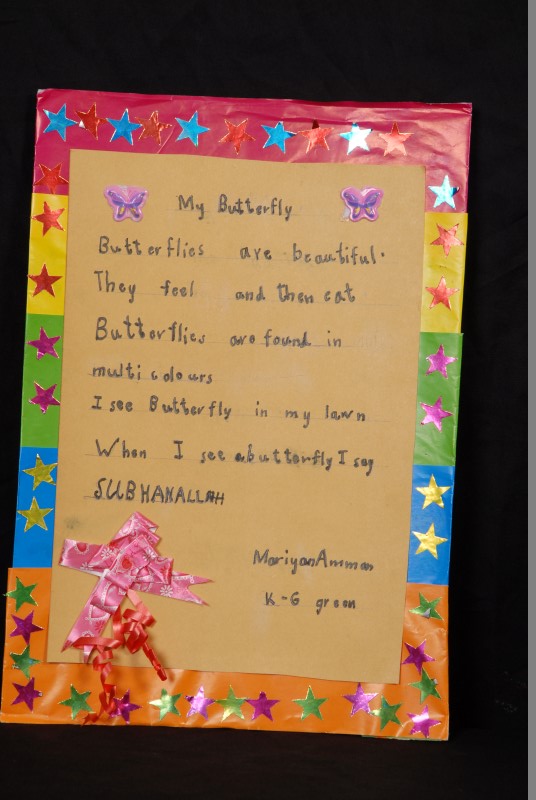 My Butterfly
Butterflies are beautiful.
They feel and then eat
Butterflies are found in
multi colours
I see Butterfly in my lawn
When I see abutterfly I say
SUBHANALLAH
Mariyan Amman
K-G green